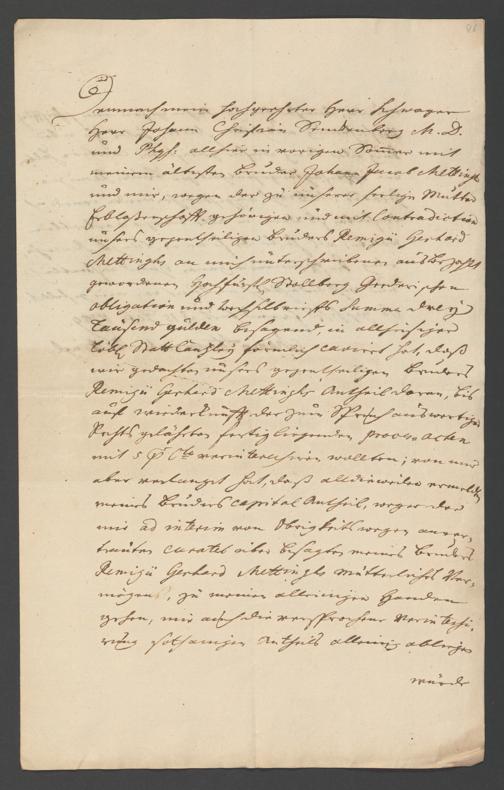 Demnach mein Hochgeehrter Herr Schwager
Herr Johann Christian Senckenberg M. D.
und Phys: allhier in vorigen Sommer mit
meinem ältesten Bruder Johann Jacob Mettingh
und mir, wegen der zu unserer seelig. Mutter
Erblaßenschafft gehörigen und mit Contradiction
unsers gegentheiligen Bruders Remigii Gerhard
Mettinghs an mich unterschriebenen ausbezahlt
gewordenen Hochfürstl. Stollberg Gederischen
obligation und Wechselbriefs Summa drey
Tausend gulden besagend, in allhiesiger
löbl. Statt Cantzley förmlich cavirt hat, daß
wir gedachten unsers gegentheiligen Bruders
Remigii Gerhard Mettinghs Antheil daran, bis
auf wiederkunfft der zum Spruch auswertiger
Rechts gelährten fertig liegenden process acten
mit 5 p Cto verinteressiren wollten; von mir
aber verlangt hat, daß alldieweilen ermelten
meines Bruders capital Antheil, wegen der
mir ad interim von Obrigkeits wegen anver-
trauten curatel über besagten meines Bruders
Remigii Gerhard Mettinghs Mütterliches Ver-
mögens, zu meinen alleinigen Handen
gehen, mir auch die versprochene Verinteressi-
rung sothanigen Antheils alleinig obliegen
würde